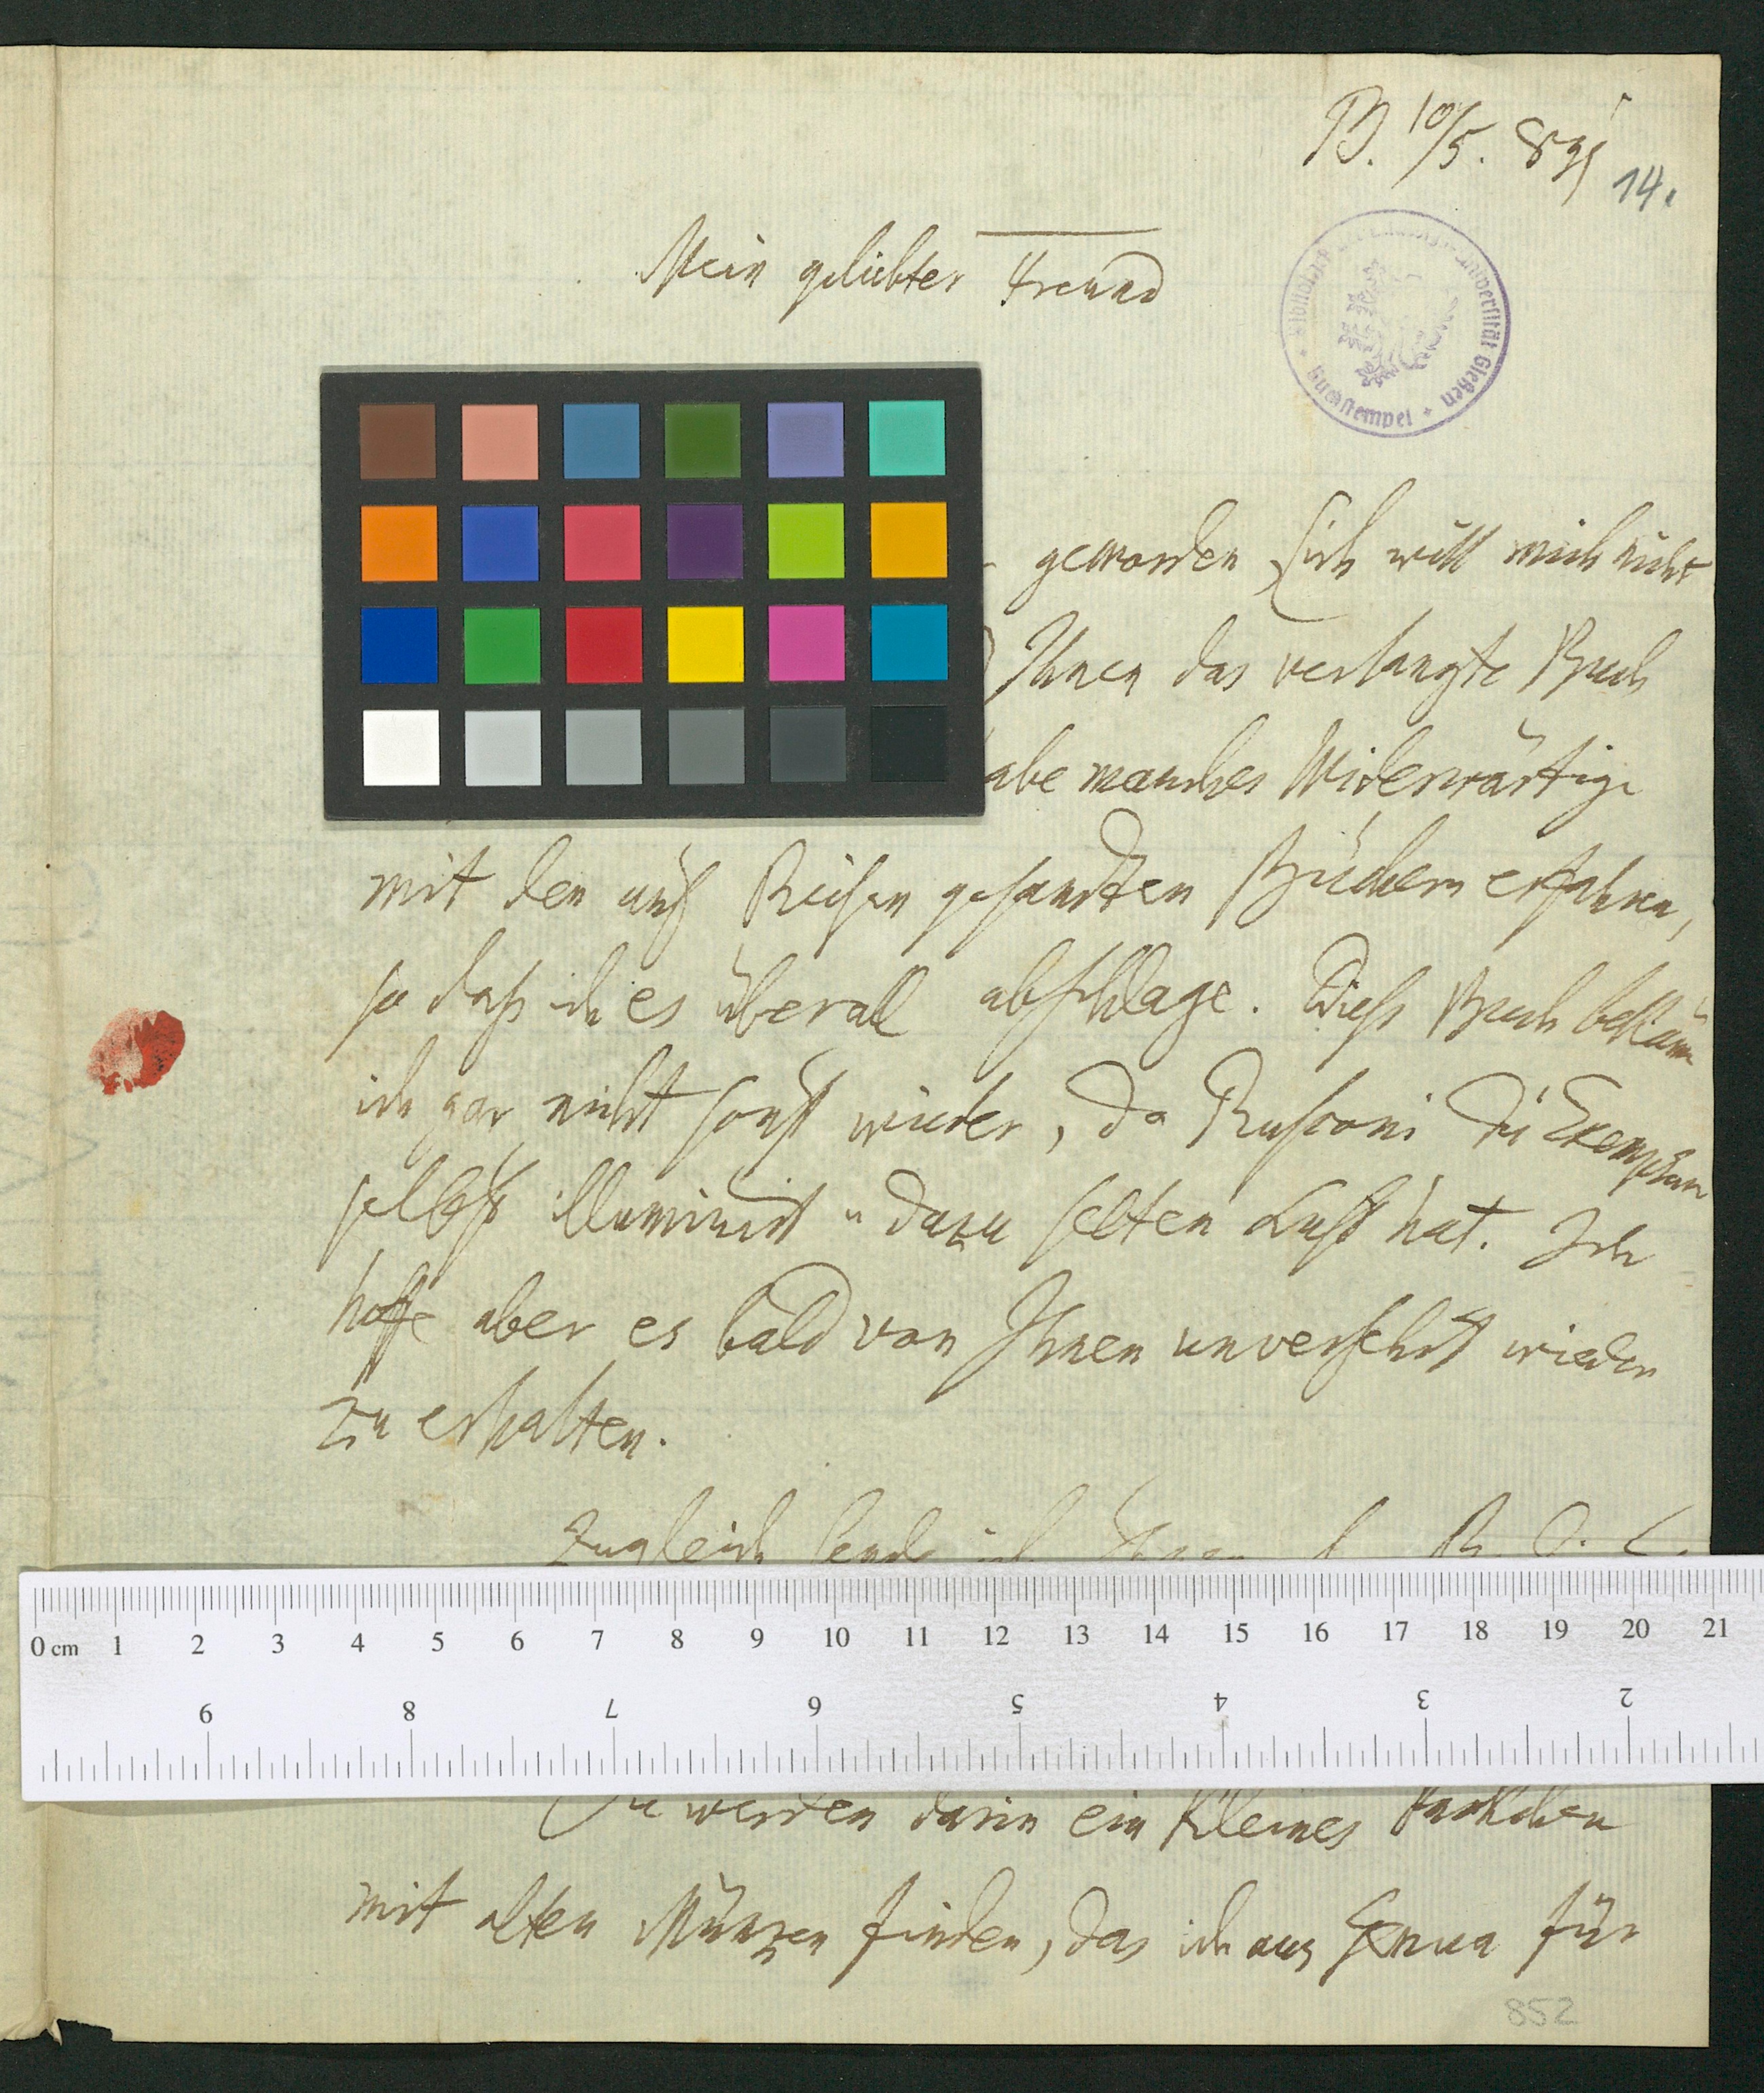 B. 10/5. 831
14.
Mein geliebter Freund
Universität Gießen
Buchstempel
geworden. Sich will mich nicht
Ihnen das verlangte Buch
abe manches Widerwärtige
mit den auf Reisen gesandten Büchern erfahren,
so daß ich es überall abschlage. Dieß Buch bekäm
ich gar nicht sonst wieder, da Rusconi die Exemplare
selbst illuminirt u dazu selten Lust hat. Ich
hoffe aber es bald von Ihnen unversehrt wieder
zu erhalten.
Zugleich sende ich
0 cm 1 2 3 4 5 6 7 8 9 10 11 12 13 14 15 16 17 18 19 20 21
9 8 7 6 5 4 3 2
Sie werden darin ein kleines Packchen
mit alten Münzen finden, das ich aus Genua für
852